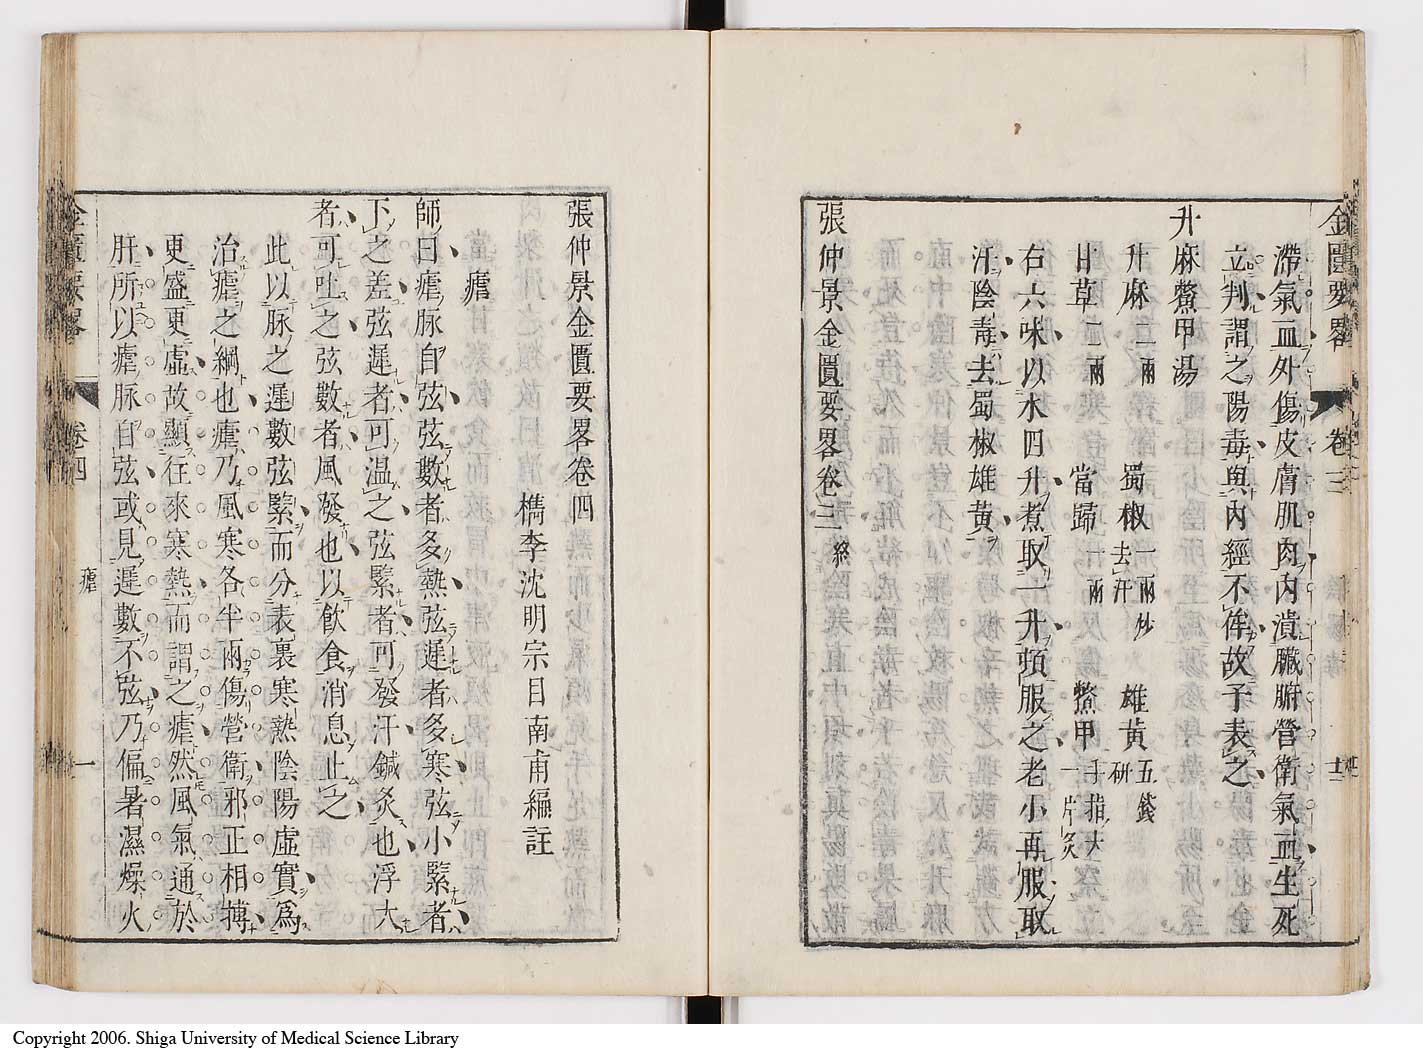 金匱要畧 卷三 十二
滯氣血外傷皮膚肌肉內潰臟腑營衛氣血生死
立判謂之陽毒與內經不侔故予表之
升麻鱉甲湯
升麻二兩 蜀椒一兩炒去汗 雄黃五錢研
甘草二兩 當歸一兩 鱉甲手指大一片炙
右六味以水四升煮取一升頓服之老小再服取
汗陰毒去蜀椒雄黃
張仲景金匱要畧卷三終
張仲景金匱要畧卷四
檇李沈明宗目南甫編註
瘧
師曰瘧脉自弦弦數者多熱弦遲者多寒弦小緊者
下之差弦遲者可温之弦緊者可發汗鍼灸也浮大
者可吐之弦數者風發也以飲食消息止之
此以脉之遲數弦緊而分表裏寒熱陰陽虛實爲
治瘧之綱也瘧乃風寒各半兩傷營衛邪正相搏
更盛更虛故顯往來寒熱而謂之瘧然風氣通於
肝所以瘧脉自弦或見遲數不弦乃偏暑濕燥火
金匱要畧 卷四 瘧 一
Copyright 2006. Shiga University of Medical Science Library